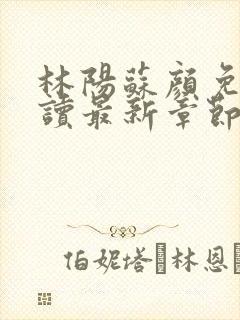 林陽蘇顏免
讀最新章節
伯妮塔 林恩